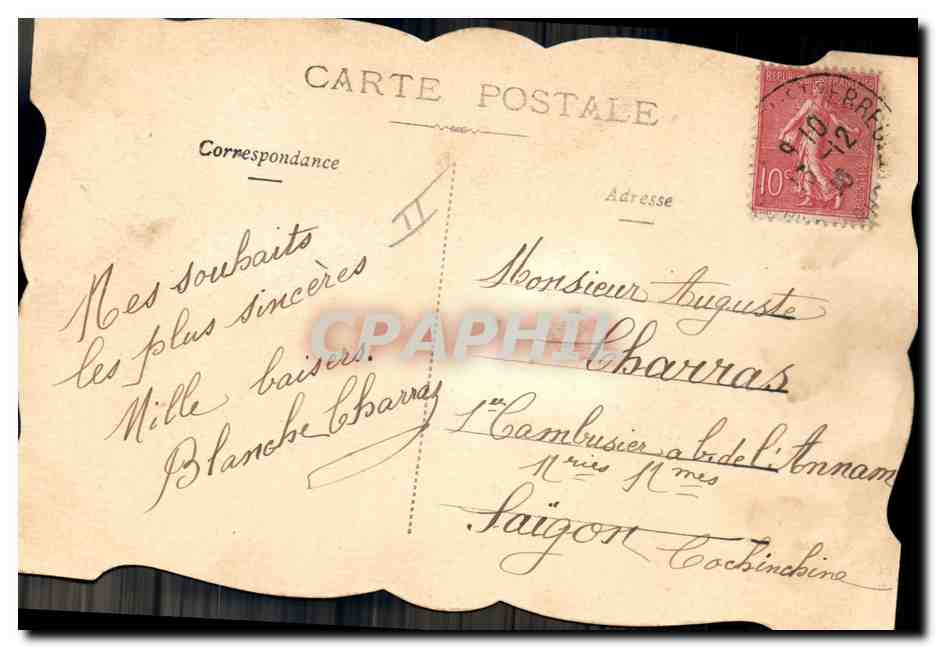 CARTE POSTALE
Correspondance
II
Mes souhaits
les plus sincères
Mille baisers.
Blanche Charras
Adresse
10c
10
12
Monsieur Auguste
Charras
1er Cambusier a b. de l'Annam
Mries Mmes
Saïgon
Cochinchine
CPAPHIL